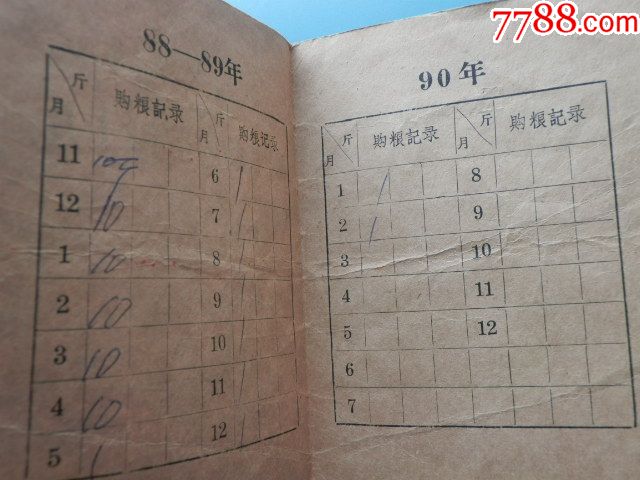 7788.com
中国收藏热线
88—89年
斤 月 购粮記录 斤 月 购粮記录
11 6 1
12 10 7 1
1 10 8 1
2 10 9 1
3 10 10 1
4 10 11 1
5 1 12 1
90年
斤 月 购粮記录 斤 月 购粮記录
1 1 8
2 1 9
3 10
4 11
5 12
6
7